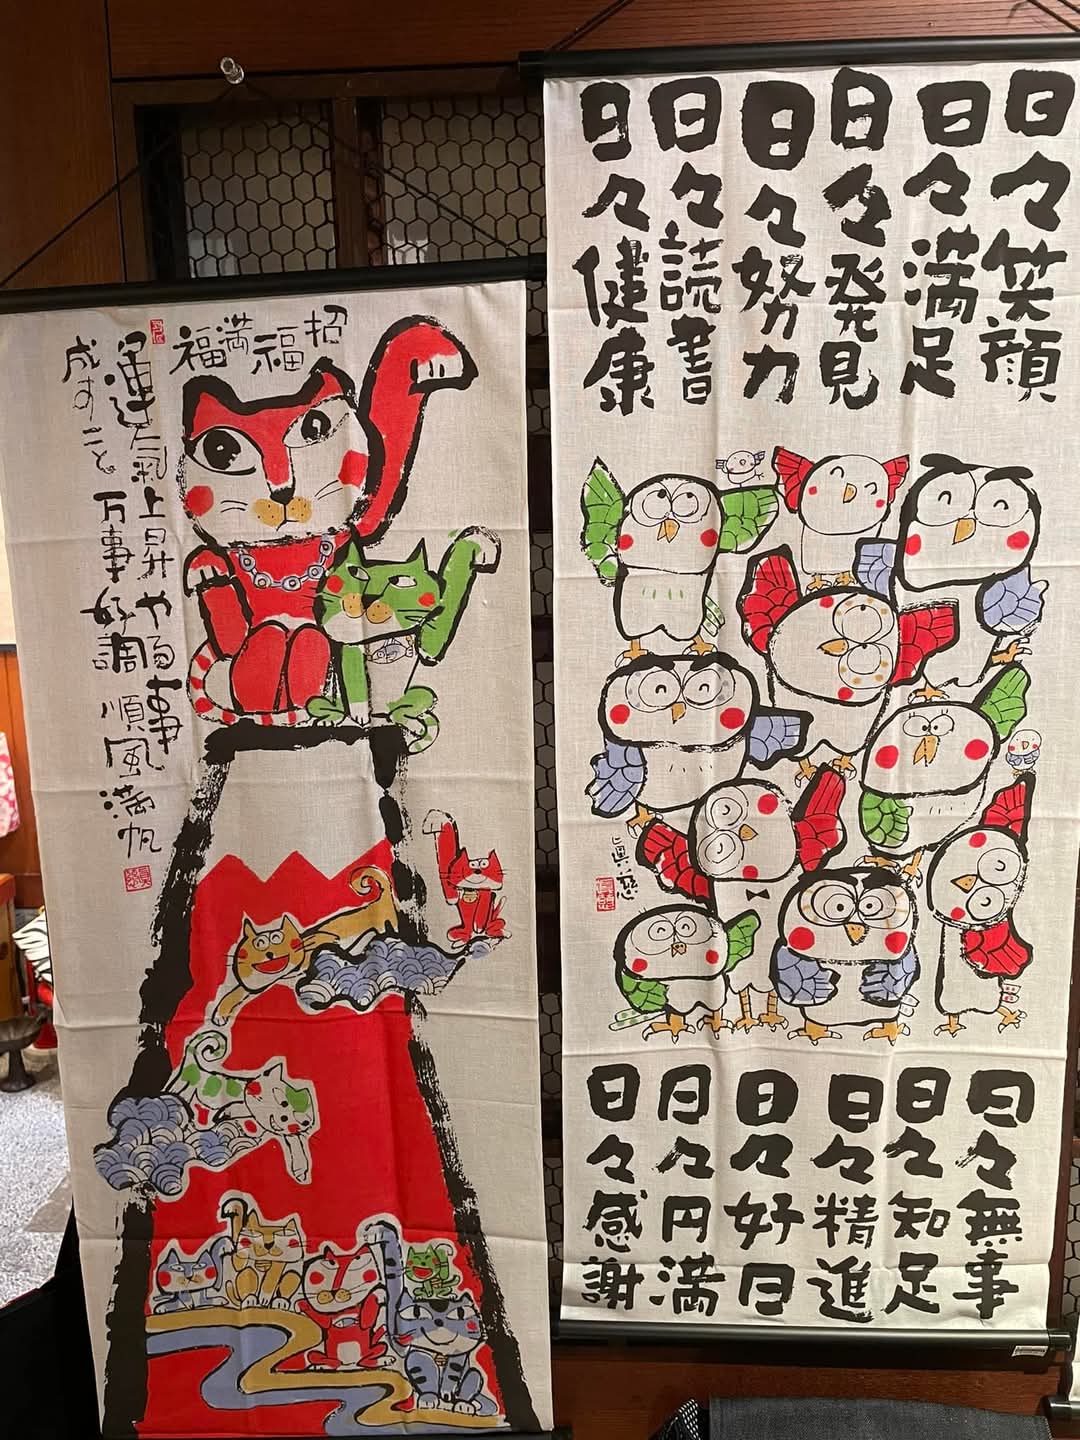 招福
満福
運氣上昇やる事
成すこと万事好調
順風満帆
日々笑顔
日々満足
日々発見
日々努力
日々読書
日々健康
眞慈
日々無事
日々知足
日々精進
日々好日
日々円満
日々感謝